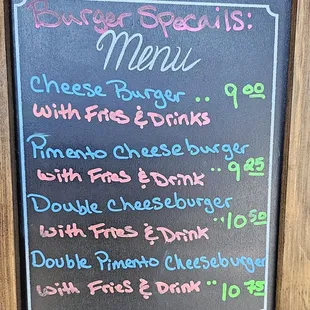 Burger Specails:
Menu
Cheese Burger .. 9 00
With Fries & Drinks
Pimento Cheeseburger
with Fries & Drink .. 9 25
Double Cheeseburger
with Fries & Drink .. 10 50
Double Pimento Cheeseburger
with Fries & Drink .. 10 75